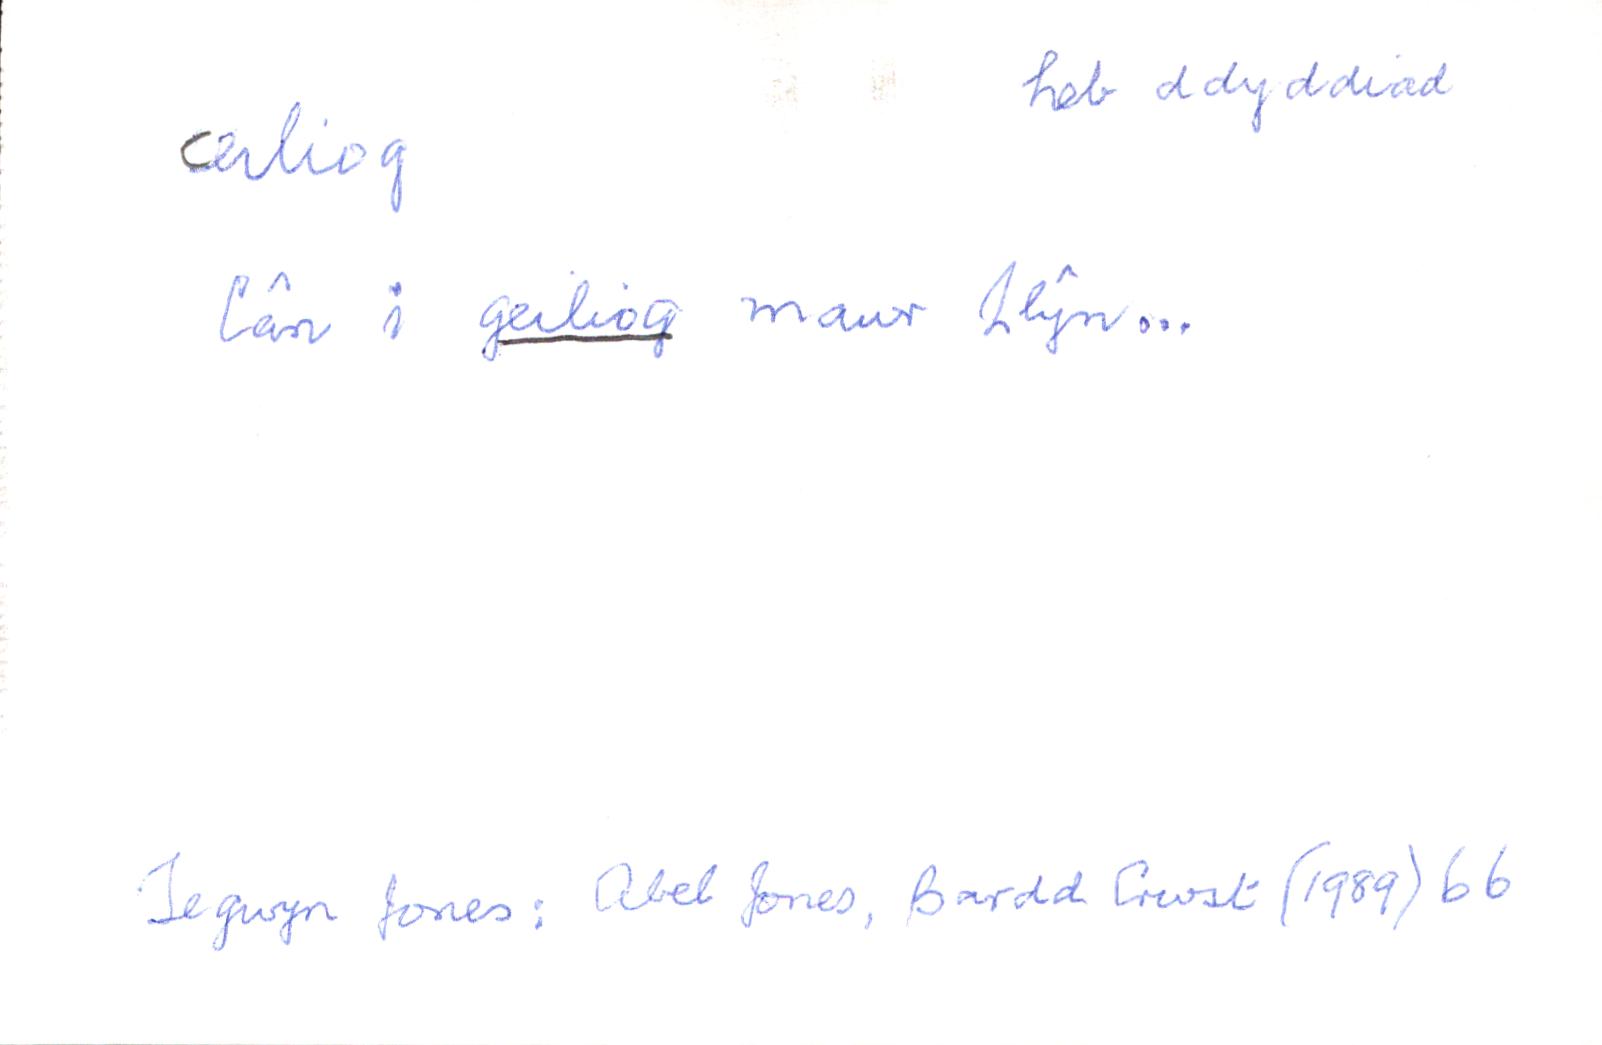 heb ddyddiad
ceiliog
Cân i geiliog mawr Llŷn...
Tegwyn Jones: Abel Jones, Bardd Crwst (1989) 66